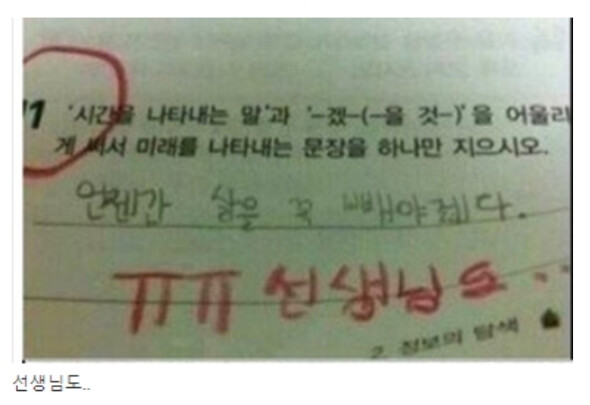 11 '시간을 나타내는 말'과 '-겠-(-을 것-)'을 어울리
게 써서 미래를 나타내는 문장을 하나만 지으시오.
언젠간 살을 꼭 빼야겠다.
ㅠㅠ 선생님도..
2. 정보의 탐색
선생님도..